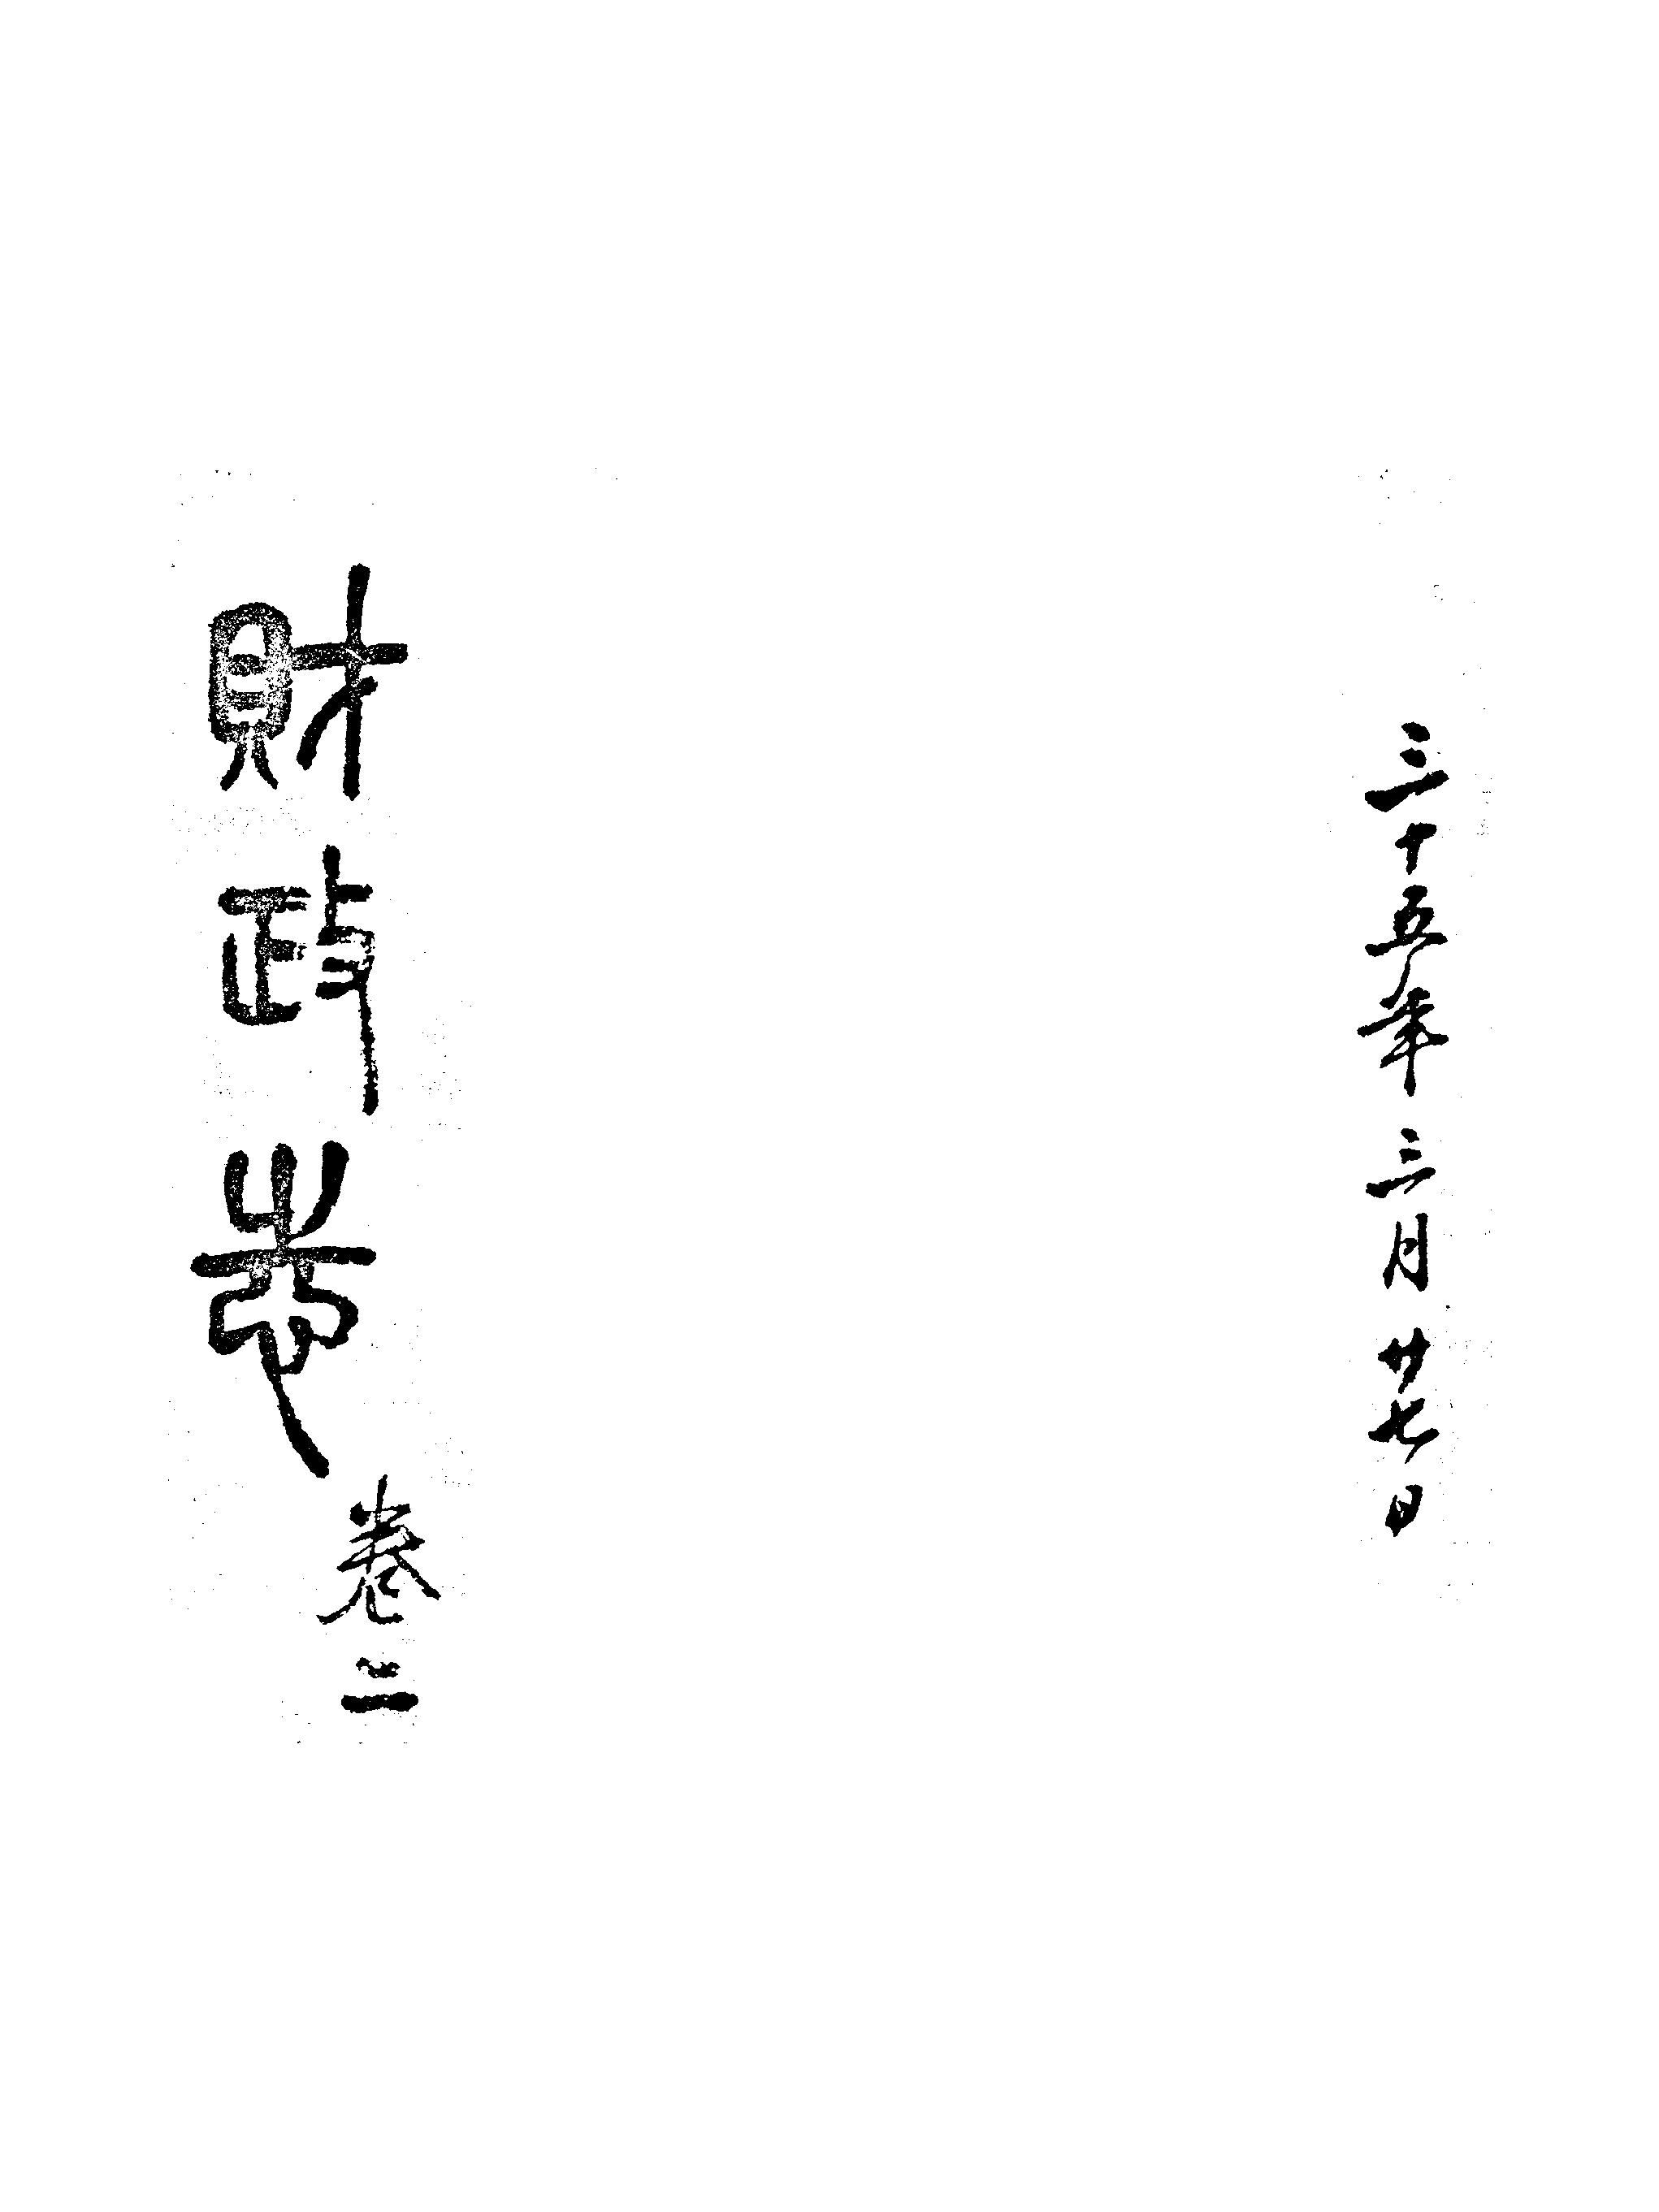 三十五年三月廿七日
財政志卷二